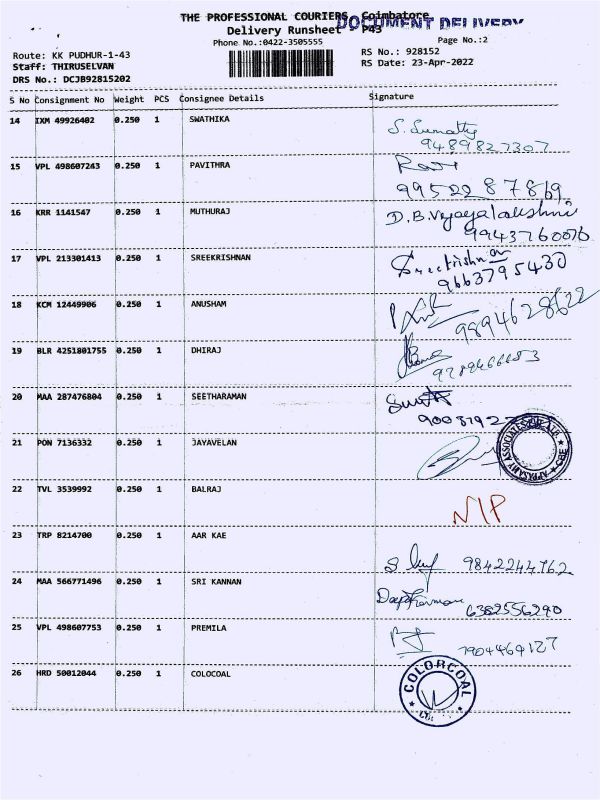 THE PROFESSIONAL COURIERS Coimbatore
DOCUMENT DELIVERY
Delivery Runsheet P43
Phone No.:0422-3505555
Page No.:2
Route: KK PUDHUR-1-43
RS No.: 928152
Staff: THIRUSELVAN
RS Date: 23-Apr-2022
DRS No.: DCJB92815202
S No Consignment No Weight PCS Consignee Details Signature
14 IXM 49926402 0.250 1 SWATHIKA S. Sumathy
9489827307
15 VPL 498607243 0.250 1 PAVITHRA Ravi
9952287869
16 KRR 1141547 0.250 1 MUTHURAJ D.B. Vijayalakshmi
9943760076
17 VPL 213301413 0.250 1 SREEKRISHNAN Sreekrishnan
9663795430
18 KCM 12449906 0.250 1 ANUSHAM
9894628622
19 BLR 4251801755 0.250 1 DHIRAJ
20 MAA 287476804 0.250 1 SEETHARAMAN
21 PON 7136332 0.250 1 JAYAVELAN
22 TVL 3539992 0.250 1 BALRAJ N/P
23 TRP 8214700 0.250 1 AAR KAE
9842244762
24 MAA 566771496 0.250 1 SRI KANNAN
6382556290
25 VPL 498607753 0.250 1 PREMILA
7904469127
26 HRD 50012044 0.250 1 COLOCOAL
COLORCOAL